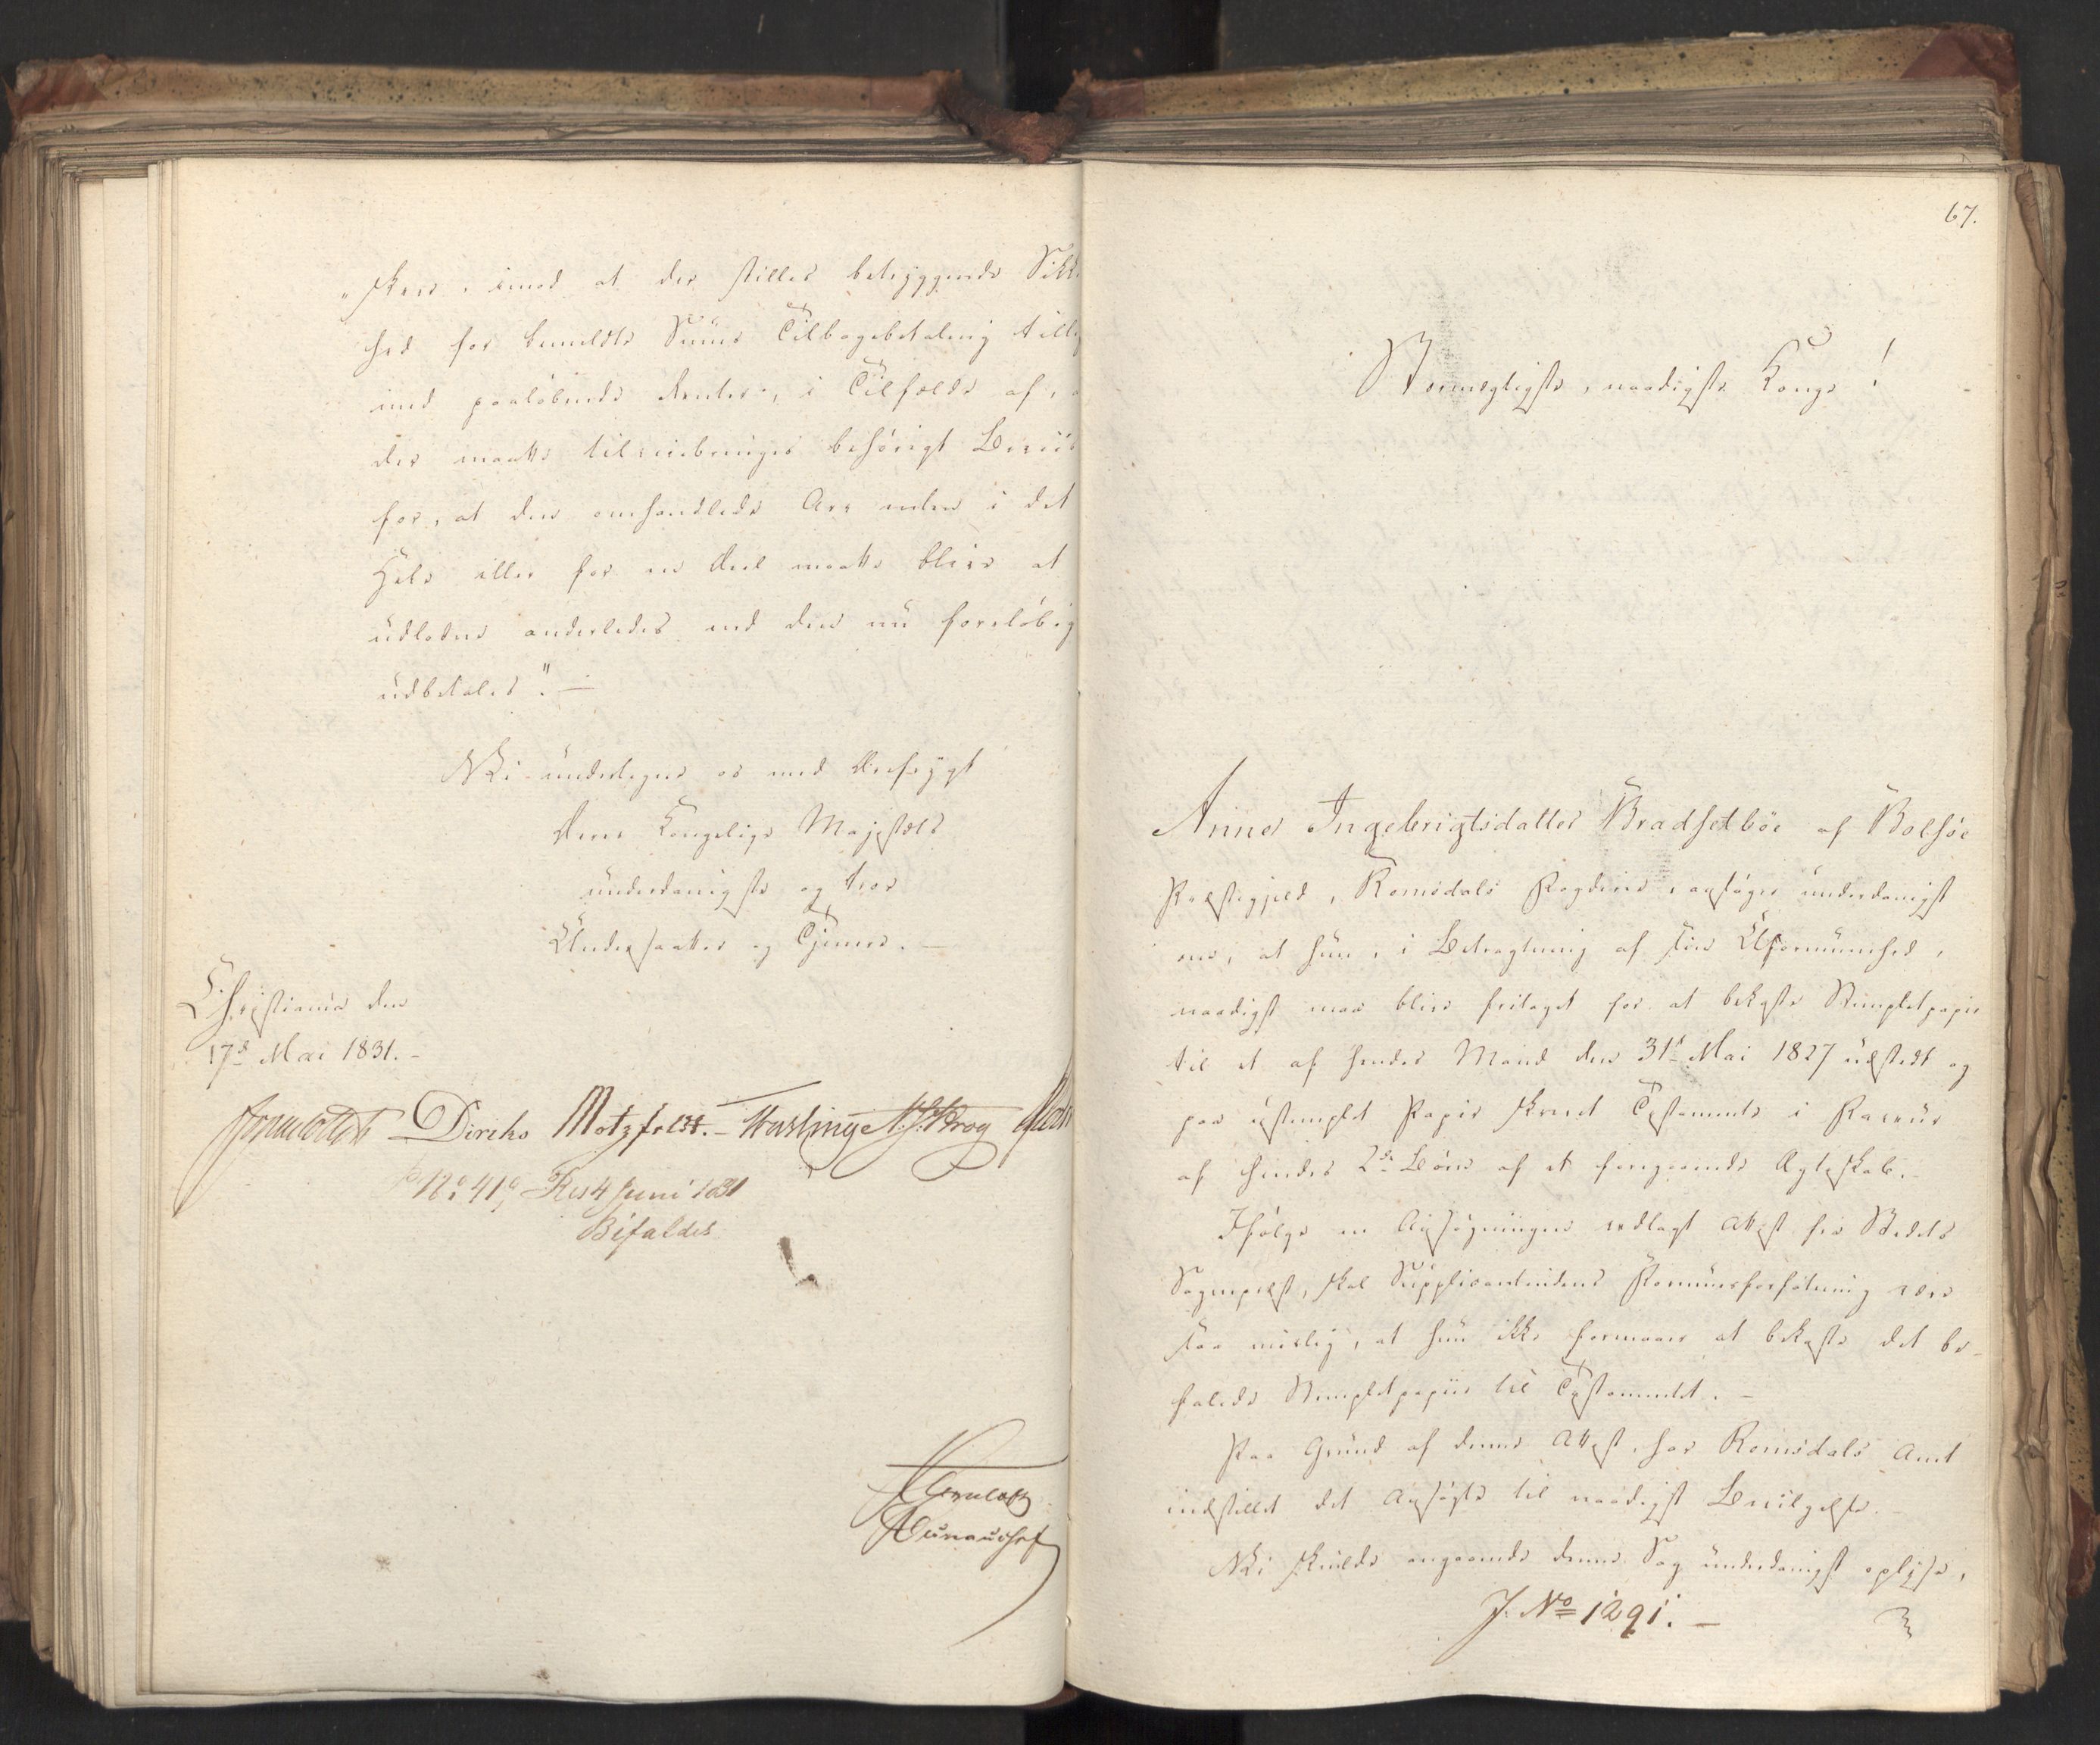 "skeer, imod at der stilles betryggende Sikk
hed for bemeldte Sums Tilbagebetaling tillig
med paaløbende Renter, i Tilfælde af, 
der maatte tilveiebringes behørigt Beviis
for, at den omhandlede Arv enten i det
Hele eller for en Deel maatte blive at
udlodne anderledes end den nu foreløbig
udbetales". —
Vi undertegne os med Ærefrygt
Deres Kongelige Majestæts
underdanigste og troe
Undersaatter og Tjenere. —
Christiania den
17de Mai 1831. -
Diriks Motzfeldt. - N. J. Krog
No 41, Res 4 Juni 1831
Bifaldes
67.
Stormægtigste, naadigste Konge!
Anne Ingebrigtsdatter Bradsetböe af Bolsöe
Præstegjeld, Romsdals Fogderie, ansøger underdanigst
om, at hun, i Betragtning af sin Uformuenhed,
naadigst maa blive fritaget for at bekoste Stempletpapir
til et af hendes Mand den 31te Mai 1827 udstedt og
paa ustemplet Papir skrevet Testamente i Faveur
af hendes 2de Børn af et foregaaende Ægteskab. -
Ifølge en Ansøgningen vedlagt Attest fra Stedets
Sogneprest, skal Supplicantindens Formuesforfatning være
saa mislig, at hun ikke formaaer at bekoste det be-
falede Stempletpapiir til Testamentet. -
Paa Grund af denne Attest, har Romsdals Amt
indstillet det Ansøgte til naadigst Bevilgelse. -
Vi skulde angaaende denne Sag underdanigst oplyse,
J. No 1291. —